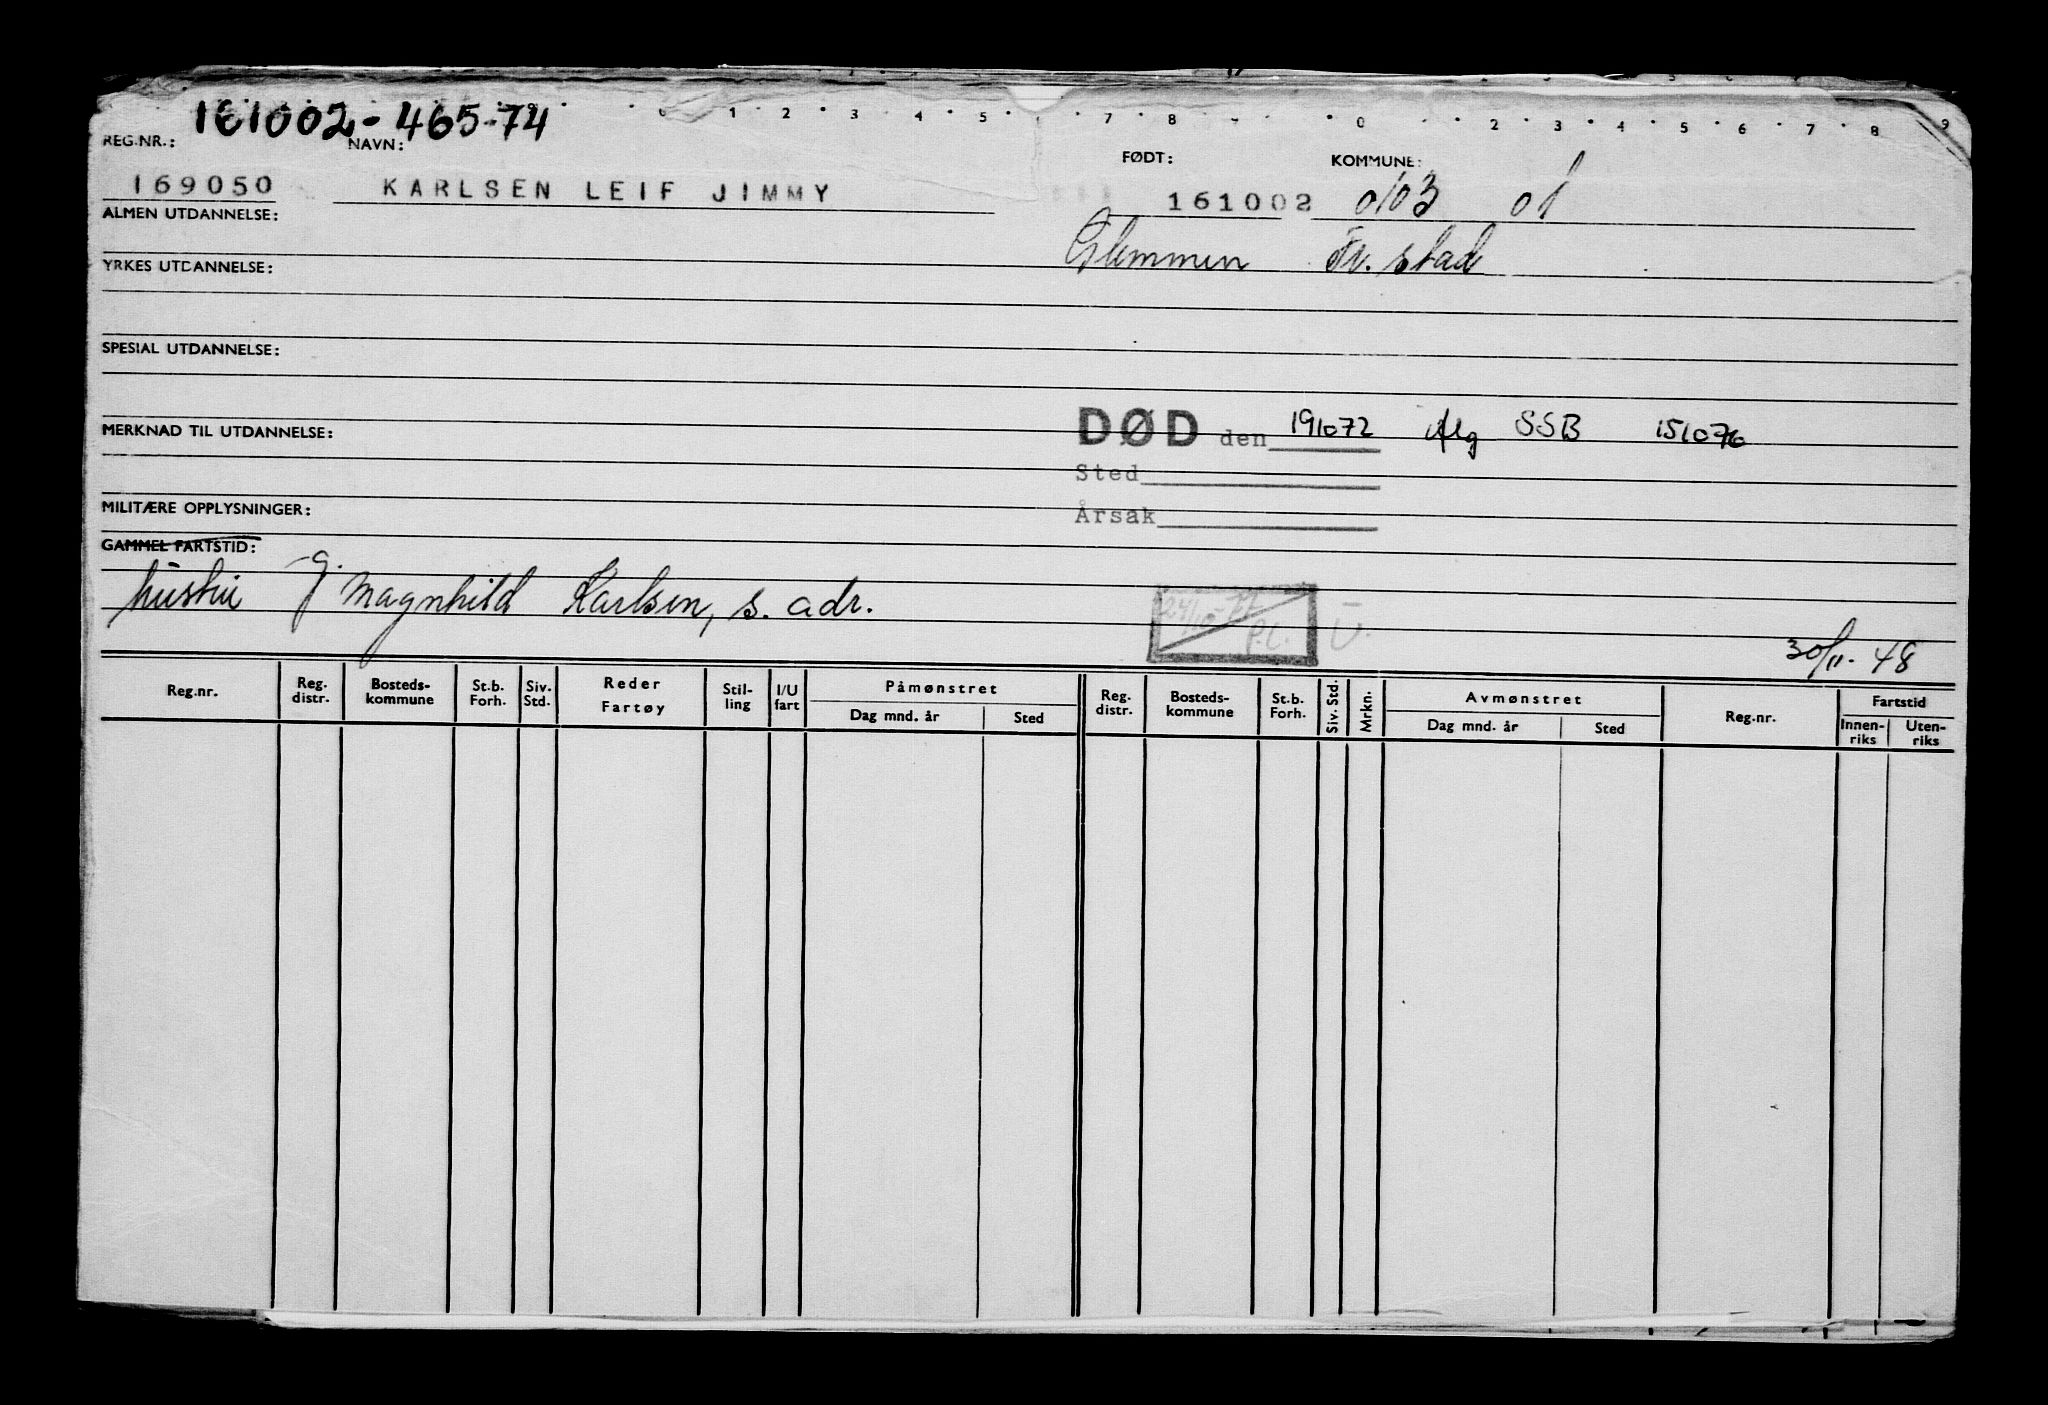 1 2 3 4 5 7 8 0 2 3 4 5 6 7 8 9
161002-465-74
REG.NR.: NAVN: FØDT: KOMMUNE:
169050 KARLSEN LEIF JIMMY 161002 0103 01
ALMEN UTDANNELSE:
Glemmen Fr.stad
YRKES UTDANNELSE:
SPESIAL UTDANNELSE:
MERKNAD TIL UTDANNELSE: DØD den 191072 SSB 151076
Sted
MILITÆRE OPPLYSNINGER: Årsak
GAMMEL FARTSTID:
hustru g. Magnhild Karlsen, s. adr.
24/10-77 P.L. U.
30/11-48
Reg.nr. Reg. distr. Bosteds-kommune St.b. Forh. Siv. Std. Reder Fartøy Stil-ling I/U fart Påmønstret Dag mnd. år Sted Reg. distr. Bosteds-kommune St.b. Forh. Siv. Std. Mrkn. Avmønstret Dag mnd. år Sted Reg.nr. Fartstid Innen-riks Uten-riks